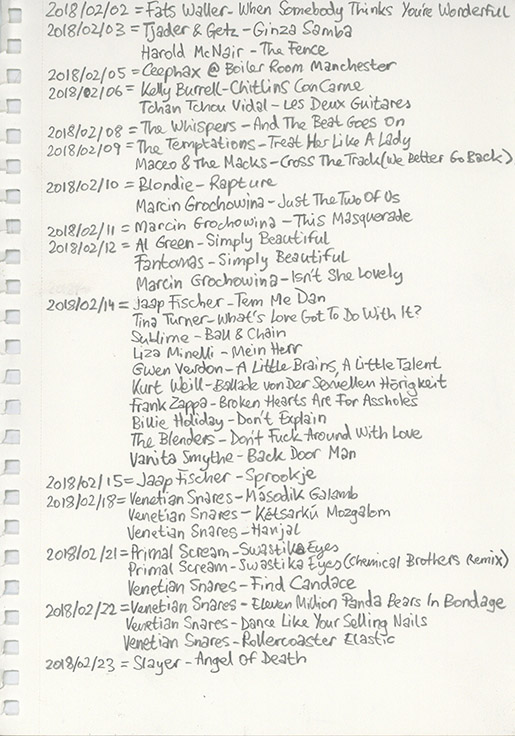 2018/02/02 = Fats Waller - When Somebody Thinks You're Wonderful
2018/02/03 = Tjader & Getz - Ginza Samba
Harold McNair - The Fence
2018/02/05 = Ceephax @ Boiler Room Manchester
2018/02/06 = Kelly Burrell - Chitlins Con Carne
Tchan Tchou Vidal - Les Deux Guitares
2018/02/08 = The Whispers - And The Beat Goes On
2018/02/09 = The Temptations - Treat Her Like A Lady
Maceo & The Macks - Cross The Track (We Better Go Back)
2018/02/10 = Blondie - Rapture
Marcin Grochowina - Just The Two Of Us
2018/02/11 = Marcin Grochowina - This Masquerade
2018/02/12 = Al Green - Simply Beautiful
Fantomas - Simply Beautiful
Marcin Grochowina - Isn't She Lovely
2018/02/14 = Jaap Fischer - Tem Me Dan
Tina Turner - What's Love Got To Do With It?
Sublime - Ball & Chain
Liza Minelli - Mein Herr
Gwen Verdon - A Little Brains, A Little Talent
Kurt Weill - Ballade von Der Sexuellen Hörigkeit
Frank Zappa - Broken Hearts Are For Assholes
Billie Holiday - Don't Explain
The Blenders - Don't Fuck Around With Love
Vanita Smythe - Back Door Man
2018/02/15 = Jaap Fischer - Sprookje
2018/02/18 = Venetian Snares - Második Galamb
Venetian Snares - Kétsarkú Mozgalom
Venetian Snares - Hanjal
2018/02/21 = Primal Scream - Swastika Eyes
Primal Scream - Swastika Eyes (Chemical Brothers Remix)
Venetian Snares - Find Candace
2018/02/22 = Venetian Snares - Eleven Million Panda Bears In Bondage
Venetian Snares - Dance Like Your Selling Nails
Venetian Snares - Rollercoaster Elastic
2018/02/23 = Slayer - Angel Of Death